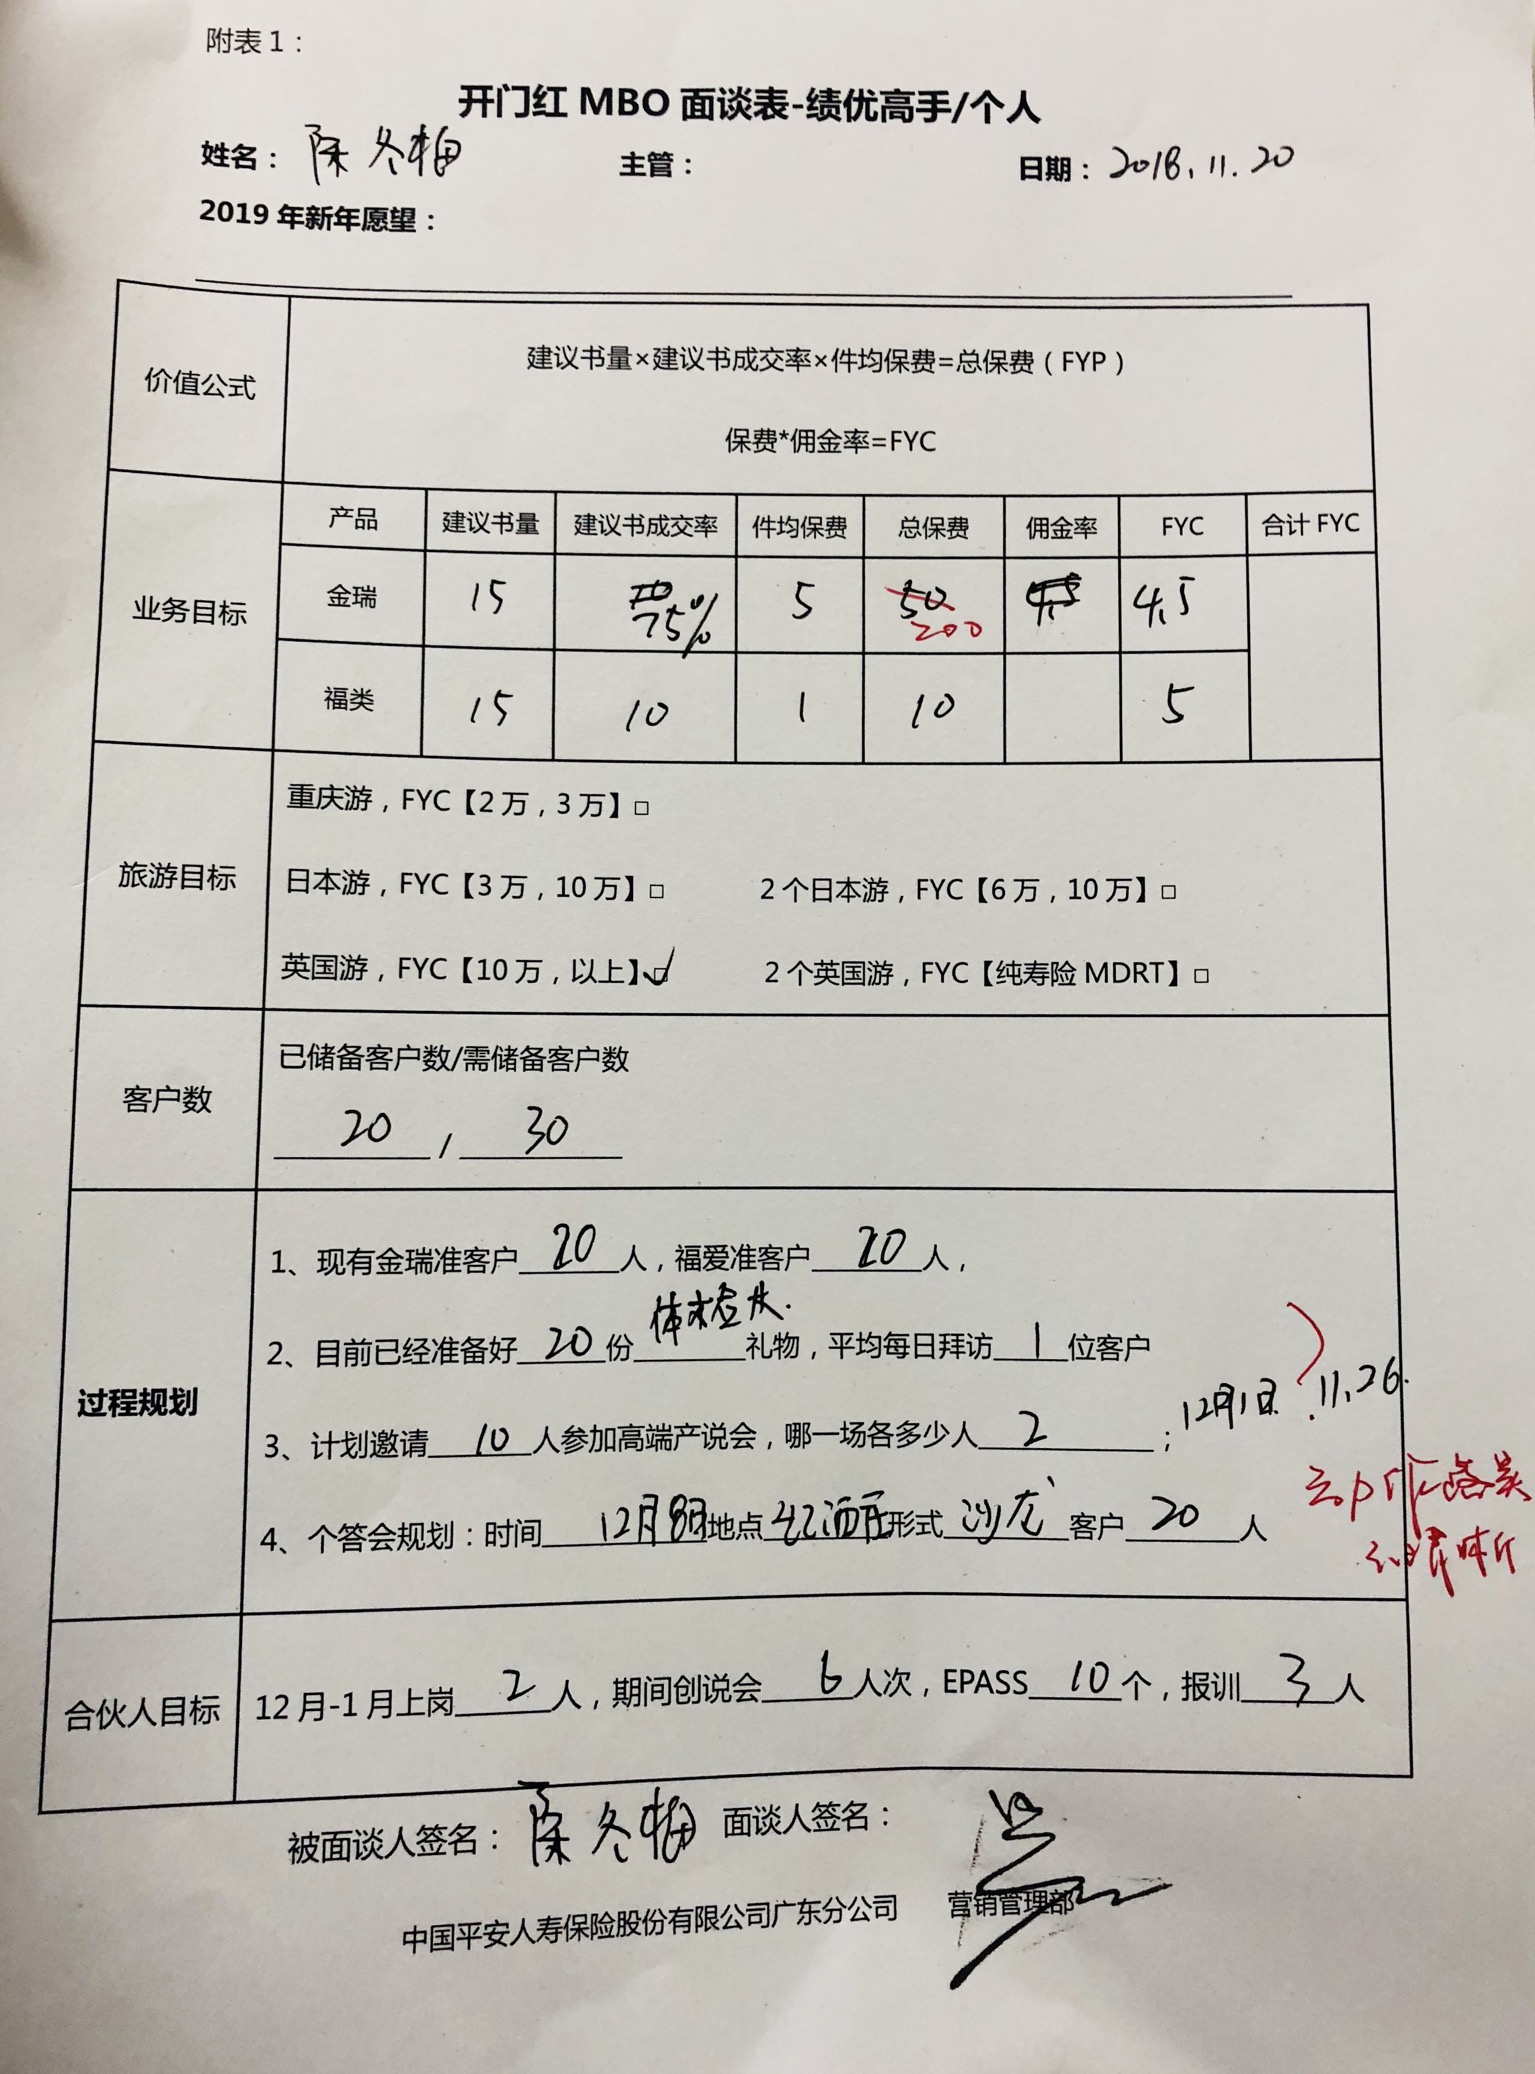 附表1：
开门红 MBO 面谈表-绩优高手/个人
姓名： 陈冬梅 主管： 日期：2018.11.20
2019 年新年愿望：
价值公式
建议书量×建议书成交率×件均保费=总保费（FYP）
保费*佣金率=FYC
业务目标
产品 建议书量 建议书成交率 件均保费 总保费 佣金率 FYC 合计 FYC
金瑞 15 75% 5 50 200 4.5 4.5
福类 15 10 1 10 5
旅游目标
重庆游，FYC【2万，3万】□
日本游，FYC【3万，10万】□ 2个日本游，FYC【6万，10万】□
英国游，FYC【10万，以上】☑ 2个英国游，FYC【纯寿险 MDRT】□
客户数
已储备客户数/需储备客户数
20 / 30
过程规划
1、现有金瑞准客户 20 人，福爱准客户 20 人，
2、目前已经准备好 20 份 体检 礼物，平均每日拜访 1 位客户
3、计划邀请 10 人参加高端产说会，哪一场各多少人 2 ； 12月1日 11.26.
4、个答会规划：时间 12月8日 地点 酒店 形式 沙龙 客户 20 人
合伙人目标
12月-1月上岗 2 人，期间创说会 6 人次，EPASS 10 个，报训 3 人
被面谈人签名： 陈冬梅 面谈人签名：
中国平安人寿保险股份有限公司广东分公司 营销管理部